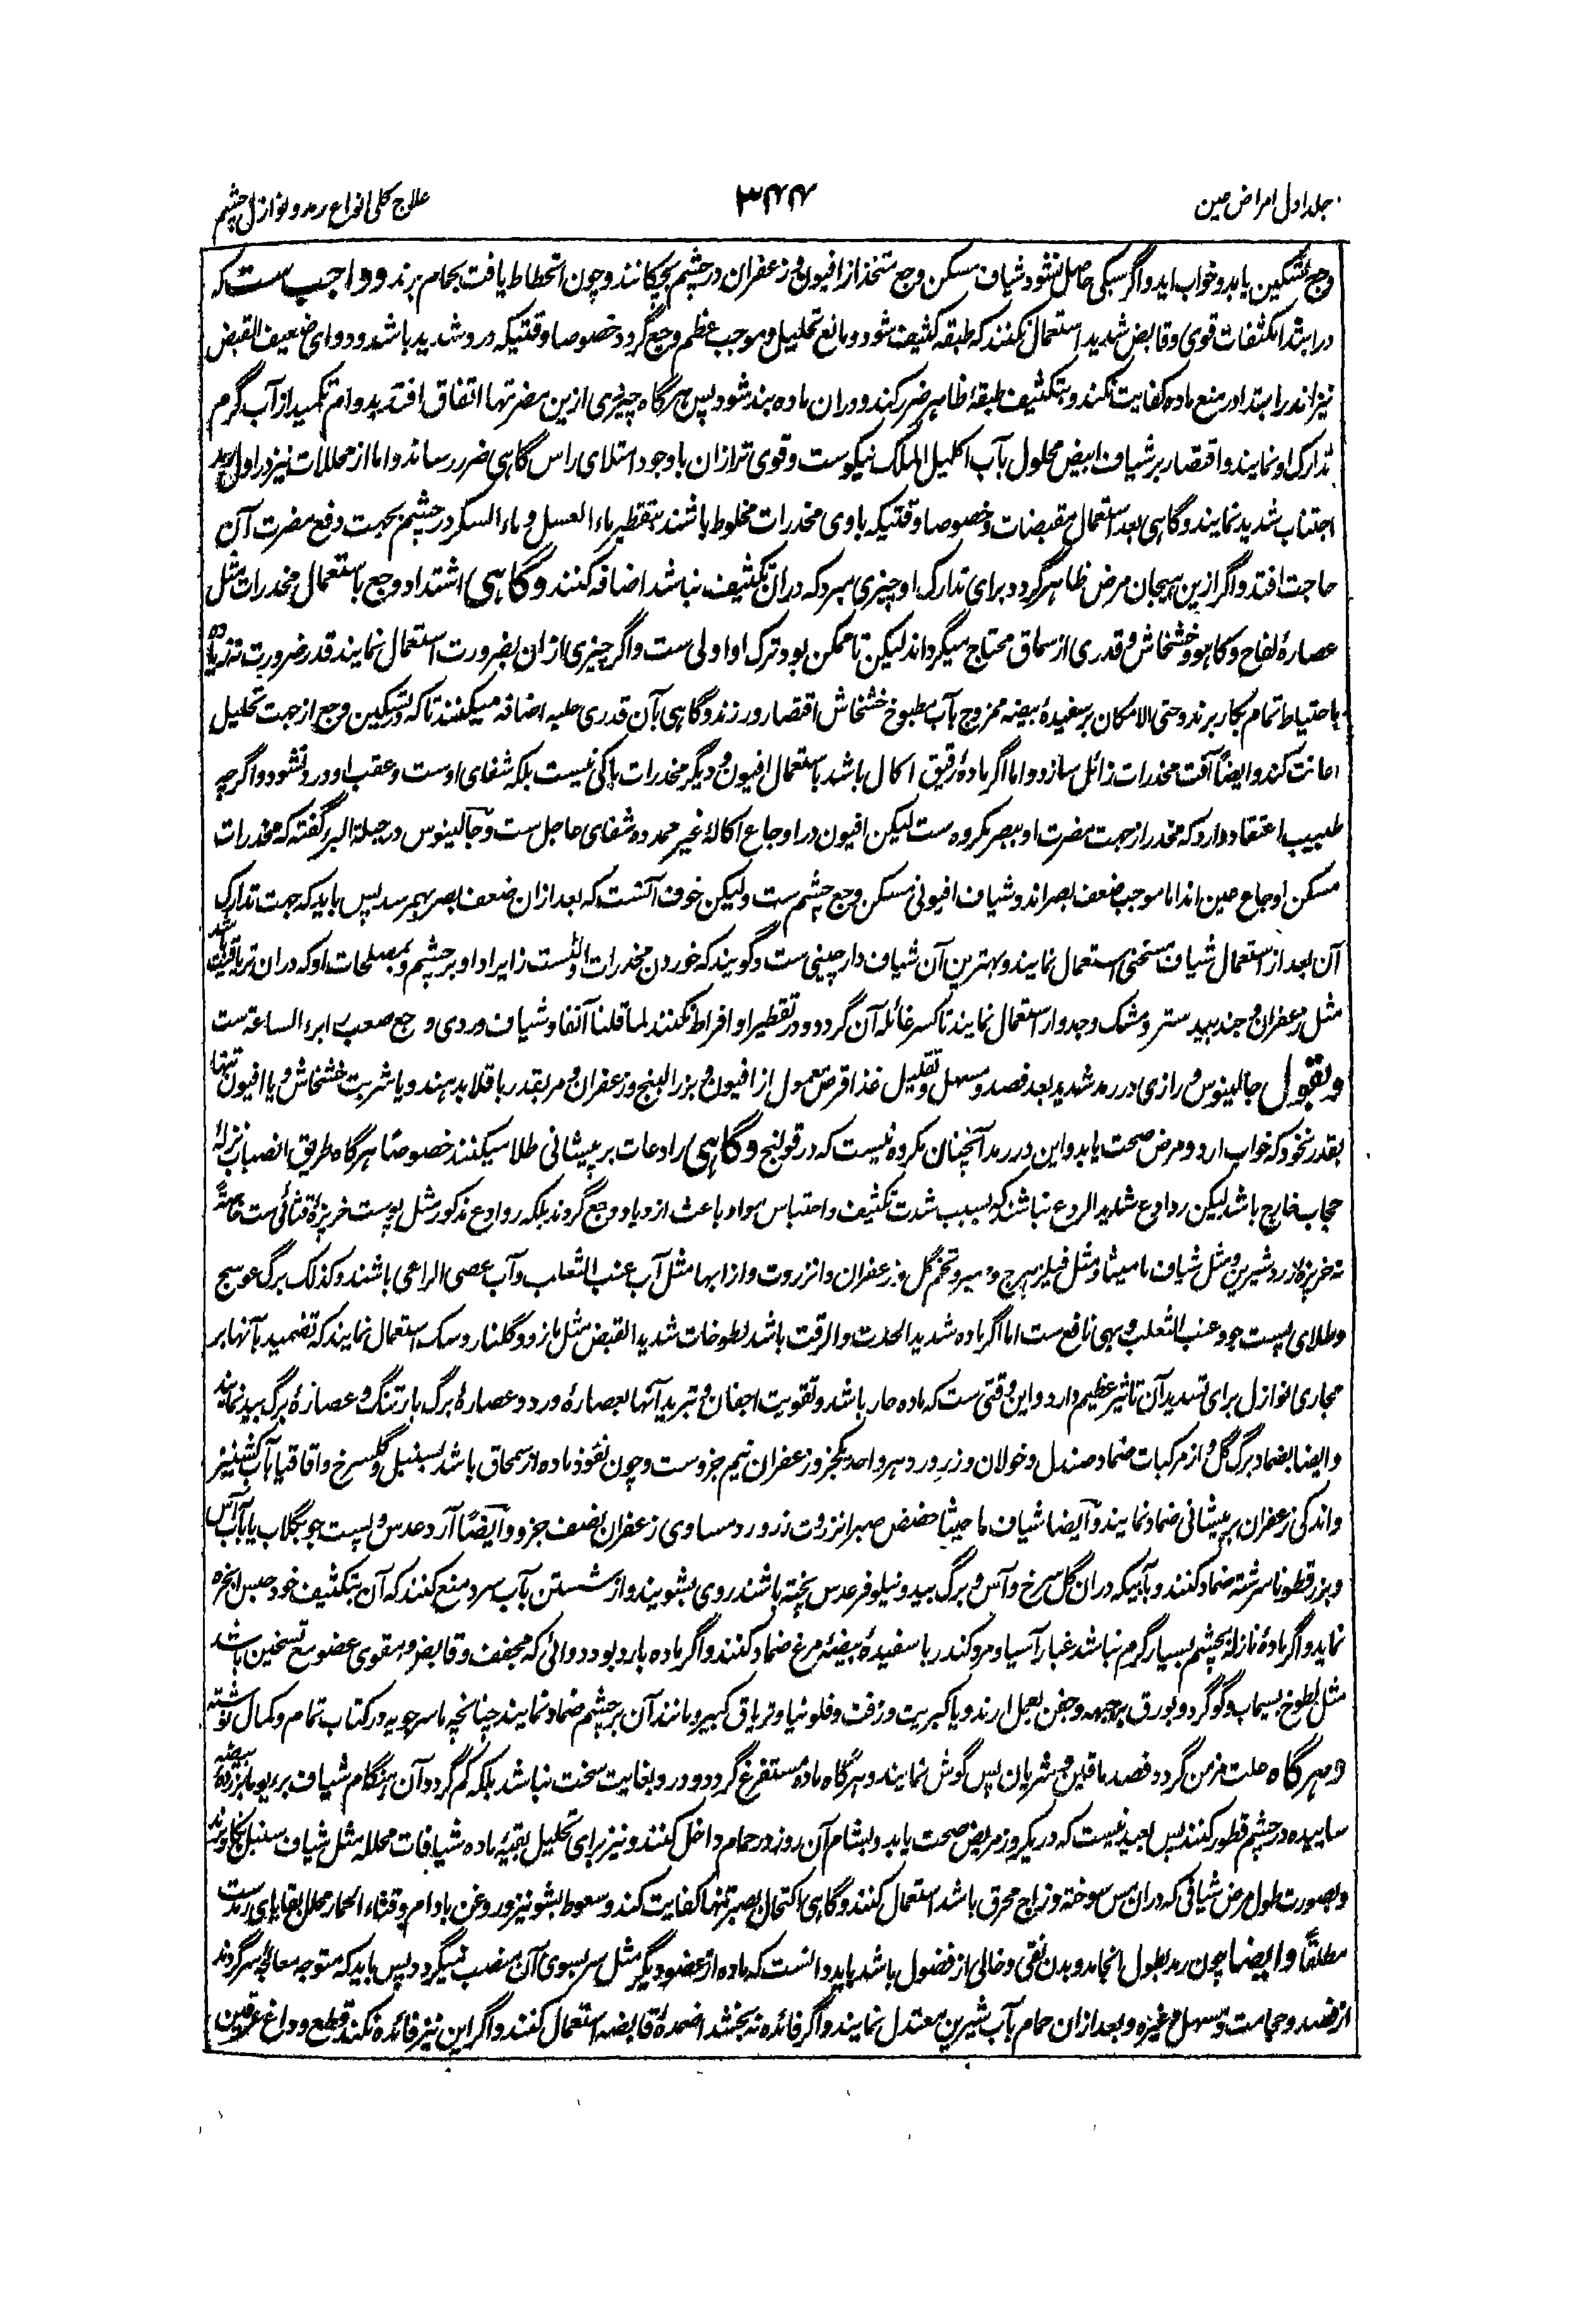 جلد اول امراض عین
۳۴۴
علاج کلی انواع رمد و نوازل چشم
وجع تسکین یابد و خواب اید و اگر سبکی حاصل نشود شیاف مسکن وجع متخذ از افیون و زعفران در چشم بچکانند و چون انحطاط یافت بحمام برند و واجب ست که
در ابتدا مکثفات قوی و قابض شدید استعمال نکنند که طبقه کثیف شود و مانع تحلیل و موجب عظم وجع گردد خصوصا وقتیکه درد شدید باشد و دوای ضعیف القبض
نیز اندر ابتدا در منع ماده کفایت نکند و بتکثیف طبقهٔ ظاهر ضرر کند و دران ماده بند شود پس هرگاه چیزی ازین مضرتها اتفاق افتد بدوام تکمید از آب گرم
تدارک او نمایند و اقتصار بر شیاف ابیض محلول بآب اکلیل الملک نیکوست و قوی تر ازان با وجود امتلای راس گاهی ضرر رساند و اما از محللات نیز در اول رمد
اجتناب شدید نمایند و گاهی بعد استعمال مقبضات و خصوصا وقتیکه با وی مخدرات مخلوط باشند بتقطیر ماء العسل و ماء السکر در چشم بجهت دفع مضرت آن
حاجت افتد و اگر ازین هیجان مرض ظاهر گردد برای تدارک او چیزی مبرد که دران تکثیف نباشد اضافه کنند و گاهی اشتداد وجع باستعمال مخدرات مثل
عصارهٔ لفاح و کاهو و خشخاش و قدری از سماق محتاج میگرداند لیکن تا ممکن بود ترک او اولی ست و اگر چیزی ازان بضرورت استعمال نمایند قدر ضرورت نه زیاده
باحتیاط تمام بکار برند و حتی الامکان بر سفیدهٔ بیضه ممزوج بآب مطبوخ خشخاش اقتصار ورزند و گاهی بآن قدری حلبه اضافه میکنند تا که در تسکین وجع از جهت تحلیل
اعانت کند و ایضاً آفت مخدرات زائل سازد و اما اگر مادهٔ رقیق اکال باشد باستعمال افیون و دیگر مخدرات باکی نیست بلکه شفای اوست و عقب او درد نشود و اگرچه
طبیب اعتقاد دارد که مخدر از جهت مضرت او ببصر مکروه ست لیکن افیون در اوجاع اکالهٔ غیر ممدده شفای عاجل ست و جالینوس در حیلة البرء گفته که مخدرات
مسکن اوجاع عین اند اما موجب ضعف بصر اند و شیاف افیونی مسکن وجع چشم ست ولیکن خوف آنست که بعد ازان ضعف بصر بهم رسد پس باید که جهت تدارک
آن بعد از استعمال شیاف مسخنی استعمال نمایند و بهترین آن شیاف دارچینی ست و گویند که خوردن مخدرات اولی ست ز ایراد او بر چشم و بمصلحات او که دران تریاقیت باشد
مثل زعفران و جند بیدستر و مشک و جدوار استعمال نمایند تا کسر غائلهٔ آن گردد و در تقطیر او افراط نکنند لما قلنا آنفا و شیاف وردی وجع صعب ابرء الساعة ست
و بقول جالینوس و رازی در رمد شدید بعد فصد و مسهل و تقلیل غذا قرص معمول از افیون و بزر البنج و زعفران و مر بقدر باقلا بدهند و یا شربت خشخاش و یا افیون تنها
بقدر نخود که خواب آرد و مرض صحت یابد و این در رمد آنچنان مکروه نیست که در قولنج و گاهی رادعات بر پیشانی طلا میکنند خصوصاً هرگاه طریق انصباب نزله
حجاب خارج باشد لیکن رداوع شدید الردع نباشند که بسبب شدت تکثیف و احتباس مواد باعث ازدیاد وجع گردند بلکه روادع مذکور مثل پوست خربزهٔ قثائی ست خاصةً
نه خربزهٔ زرد شیرین و مثل شیاف مامیثا و مثل فیلزهرج و صبر و تخم گل و زعفران و انزروت و از ابها مثل آب عنب الثعلب و آب عصی الراعی باشند و کذلک برگ عوسج
و طلای پست جو و عنب الثعلب و بهی نافع ست اما اگر ماده شدید الحدت و الرقت باشد لطوخات شدید القبض مثل مازو و گلنار و سک استعمال نمایند که تضمید بآنها بر
مجاری نوازل برای تسدید آن تاثیر عظیم دارد و این وقتی ست که ماده حار باشد و تقویت اجفان و تبرید آنها بعصارهٔ ورد و عصارهٔ برگ بارتنگ و عصارهٔ برگ بید نمایند
و ایضا بضماد برگ گل و از مرکبات ضماد صندل و خولان و زر ورد هر واحد یکجزو زعفران نیم جزو ست و چون نفوذ ماده از سمحاق باشد بسنبل و گلسرخ و اقاقیا بآب کشنیز
و اندکی زعفران بر پیشانی ضماد نمایند و ایضا شیاف مامیثا حضض صبر انزروت زر ورد مساوی زعفران نصف جزو و ایضاً آرد عدس و پست جو بگلاب یا بآب آس
و بزرقطونا سرشته ضماد کنند و بآبیکه دران گل سرخ و آس و برگ بید و نیلوفر عدس پخته باشند روی بشویند و از شستن بآب سرد منع کنند که آن بتکثیف خود حبس ابخره
نماید و اگر مادهٔ نازله بچشم بسیار گرم نباشد غبار آسیا و مر و کندر با سفیدهٔ بیضهٔ مرغ ضماد کنند و اگر ماده بارد بود دوائی که مجفف و قابض و مقوی عضو مع تسخین باشد
مثل لطوخ سیماب و گوگرد و بورق بر جبهه و جفن بعمل ارند و یا کبریت و زفت و فلونیا و تریاق کبیر و مانند آن بر چشم ضماد نمایند چنانچه ماسرجویه در کتاب تمام و کمال نوشته
و هرگاه علت مزمن گردد فصد ماقین و شریان پس گوش نمایند و هرگاه ماده مستفرغ گردد و درد بغایت سخت نباشد بلکه کم گردد آن هنگام شیاف بریو با زردهٔ بیضه
ساییده در چشم قطور کنند پس بعید نیست که در یکروز مریض صحت یابد و بشام آن روز در حمام داخل کنند و نیز برای تحلیل بقیهٔ ماده شیافات محلله مثل شیاف سنبل بکار برند
و بصورت طول مرض شیافی که دران مس سوخته و زاج محرق باشد استعمال کنند و گاهی اکتحال بصبر تنها کفایت کند و سعوط بشونیز و روغن بادام و قثاء الحمار محلل بقایای رمد ست
مطلقاً و ایضا چون رمد بطول انجامد و بدن نقی و خالی از فضول باشد باید دانست که ماده از عضو دیگر مثل سر بسوی آن منصب میگردد پس باید که متوجه معالجهٔ سر گردند
از فصد و حجامت و مسهل و غیره و بعد ازان حمام بآب شیرین معتدل نمایند و اگر فائده نه بخشد اضمدهٔ قابضه استعمال کنند و اگر این نیز فائده نکند قطع و داغ عرقین